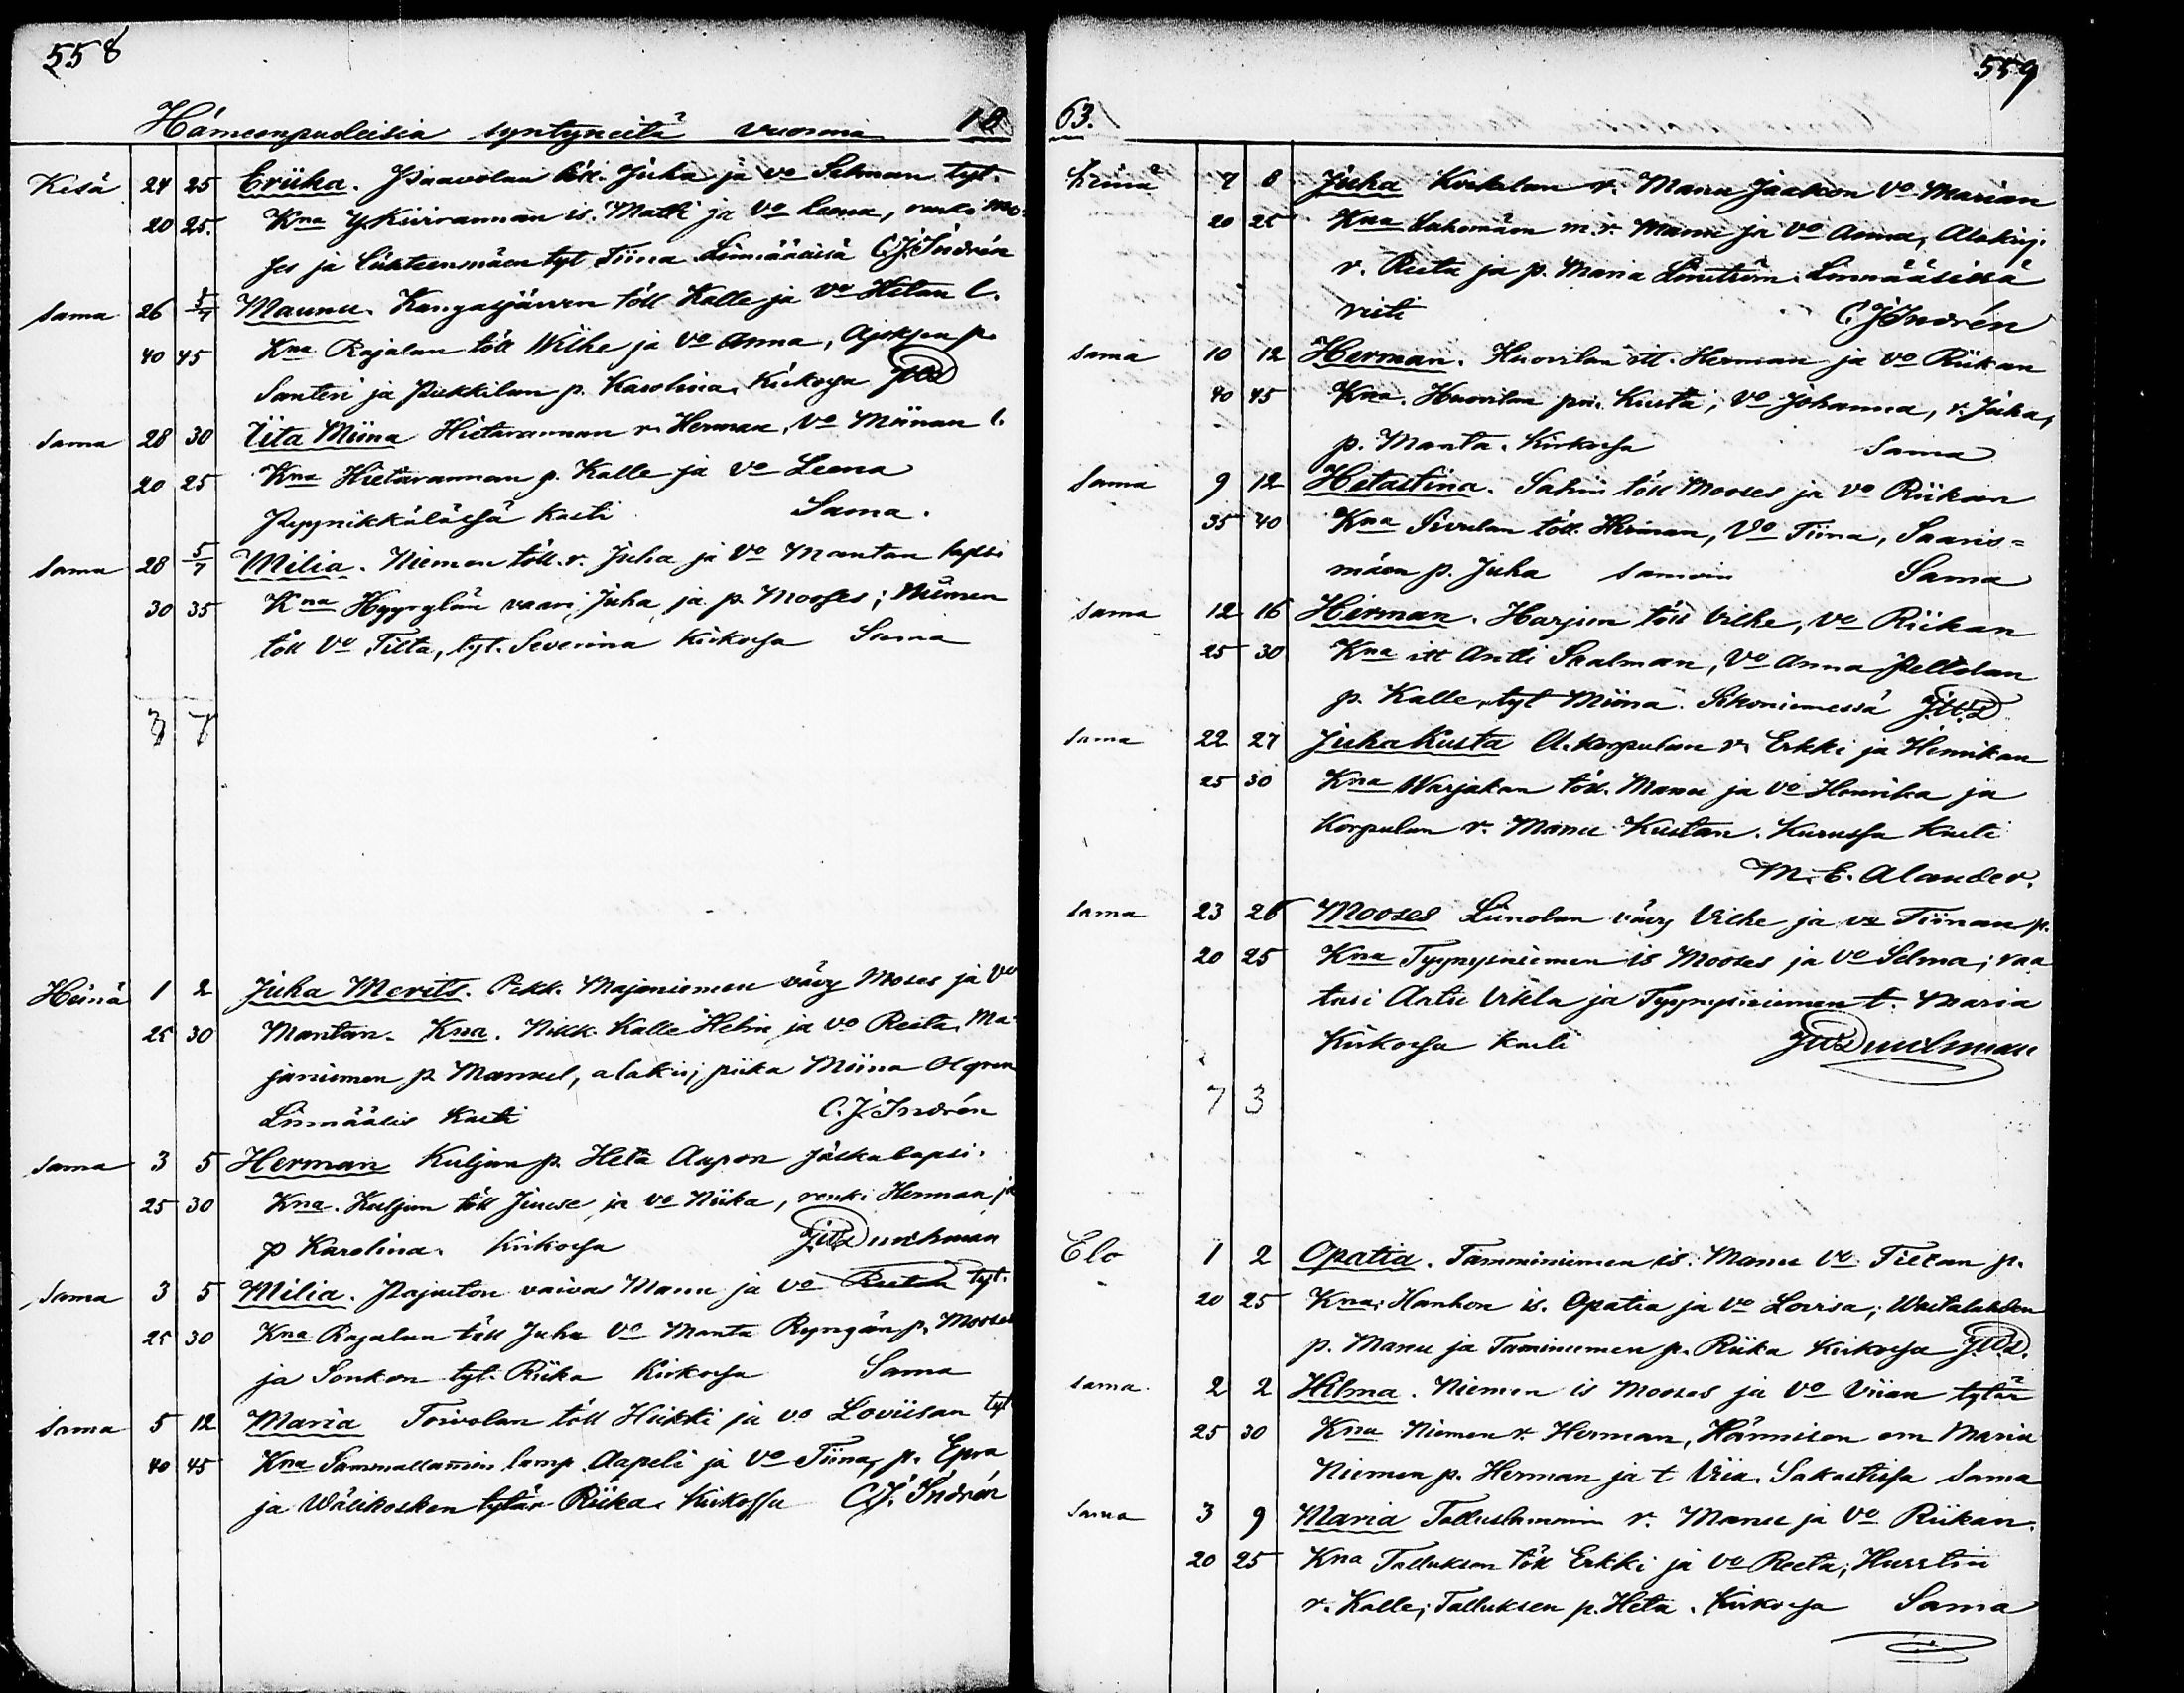 558
Hämeenpuoleisia syntyneitä vuonna 18
Kesä 24 25 Eriika. Paavolan töll. Juha ja vo Selman tyt.
20 25. Kna Y.Kivirannan is. Matti ja Vo Leena, renki Moo-
ses ja Lähteenmäen tyt Tiina Linnääisä C.J.Indrén
Sama 26 5/7 Maunu. Kangasjärven töll Kalle ja Vo Hetan l.
40 45 Kna Rajalan töll Wilhe ja Vo Anna, p.
Santeri ja Pukkilan p. Karolina. Kirkossa
Sama 28 30 Iita Miina Hietarannan r. Herman, Vo Miinan l.
20 25 Kna Hietarannan p. Kalle ja Vo Leena
Pyynikkälässä kasti Sama.
Sama 28 5/7 Milia. Niemen töll. v. Juha ja Vo Mantan lapsi
30 35 Kna Hyyrylän vaari Juha ja p. Mooses; Niemen
töll Vo Tilta, tyt. Severina Kirkossa Sama
3 7
Heinä 1 2 Juha Merits. Pekk. Majaniemen vävy Moses ja Vo
25 30 Mantan. Kna. Nikk. Kalle Helin ja vo Reeta. Ma-
janiemen p. Manuel, alakirj piika Miina
Linnääis Kasti C.J.Indrén
Sama 3 5 Herman Kuljun p. Heta Aapon jäskalapsi.
25 30 Kna. Kuljun töll Juuse ja vo Riika, renki Herman ja
p Karolina. Kirkossa
Sama 3 5 Milia. Pajuston vaivas Manu ja vo Reetan tyt.
25 30 Kna Rajalan töll Juha Vo Manta p. Mooses
ja Sonkon tyt. Riika Kirkossa Sama
Sama 5 12 Maria Toivolan töll Heikki ja vo Loviisan tyt
40 45 Kna Sammallammin lamp. Aapeli ja Vo Tiina, p. Epra
ja Wälikosken tytär Riika. Kirkossa C.J.Indrén
559
63.
Heinä 7 8 Juha r. Manu Jaakon Vo Marian
20 25 Kna m.r. Manu ja Vo Anna, Alakirj.
r. Reeta ja p. Maria Linström. Linnääsissä
risti C.J.Indrén
Sama 10 12 Herman. Huovilan itt. Herman ja vo Riikan
40 45 Kna. Huovilan Kusta, Vo Johanna, r. Juha,
p. Manta. Kirkossa Sama
Sama 9 12 Hetastina. Sahin töll Mooses ja vo Riikan
35 40 Kna Sivulan töll. Herman, Vo Tiina, Saaris=
mäen p. Juha samoin Sama
Sama 12 16 Herman. Harjun töll Vilhe, Vo Riikan
25 30 Kna itt Antti Saalman, Vo Anna Peltolan
p. Kalle, tyt Miina. Sikoniemessä
Sama 22 27 Juha Kusta A.Korpulan r. Erkki ja Henrikan
25 30 Kna Warjakan töll. Manu ja Vo Henrika ja
Korpulan r. Manu Kustan. Kurussa Kasti
M. E. Alander.
Sama 23 26 Mooses Liinolan vävy Vilhe ja vo Tiinan p.
20 25 Kna Tyynysniemen is Mooses ja vo Selma; raa
tari Antu ja Tyynysniemen t. Maria
Kirkossa kasti
7 3
Elo 1 2 Opatia. Tamminiemen is. Manu Vo Tiltan p.
20 25 Kna; Hanhon is. Opatia ja Vo Lovisa; Wastalahden
p. Manu ja Taminiemen p. Riika Kirkossa
Sama 2 2 Hilma. Niemen is Mooses ja Vo Viian tytär
25 30 Kna Niemen r. Herman, Hännisen em Maria
Niemen p. Herman ja t Viia. Sakastissa Sama
Sama 3 9 Maria Talluslammin r. Manu ja Vo Riikan.
20 25 Kna Talluksen töll Erkki ja vo Reeta; Hurstin
r. Kalle; Talluksen p. Heta. Kirkossa Sama